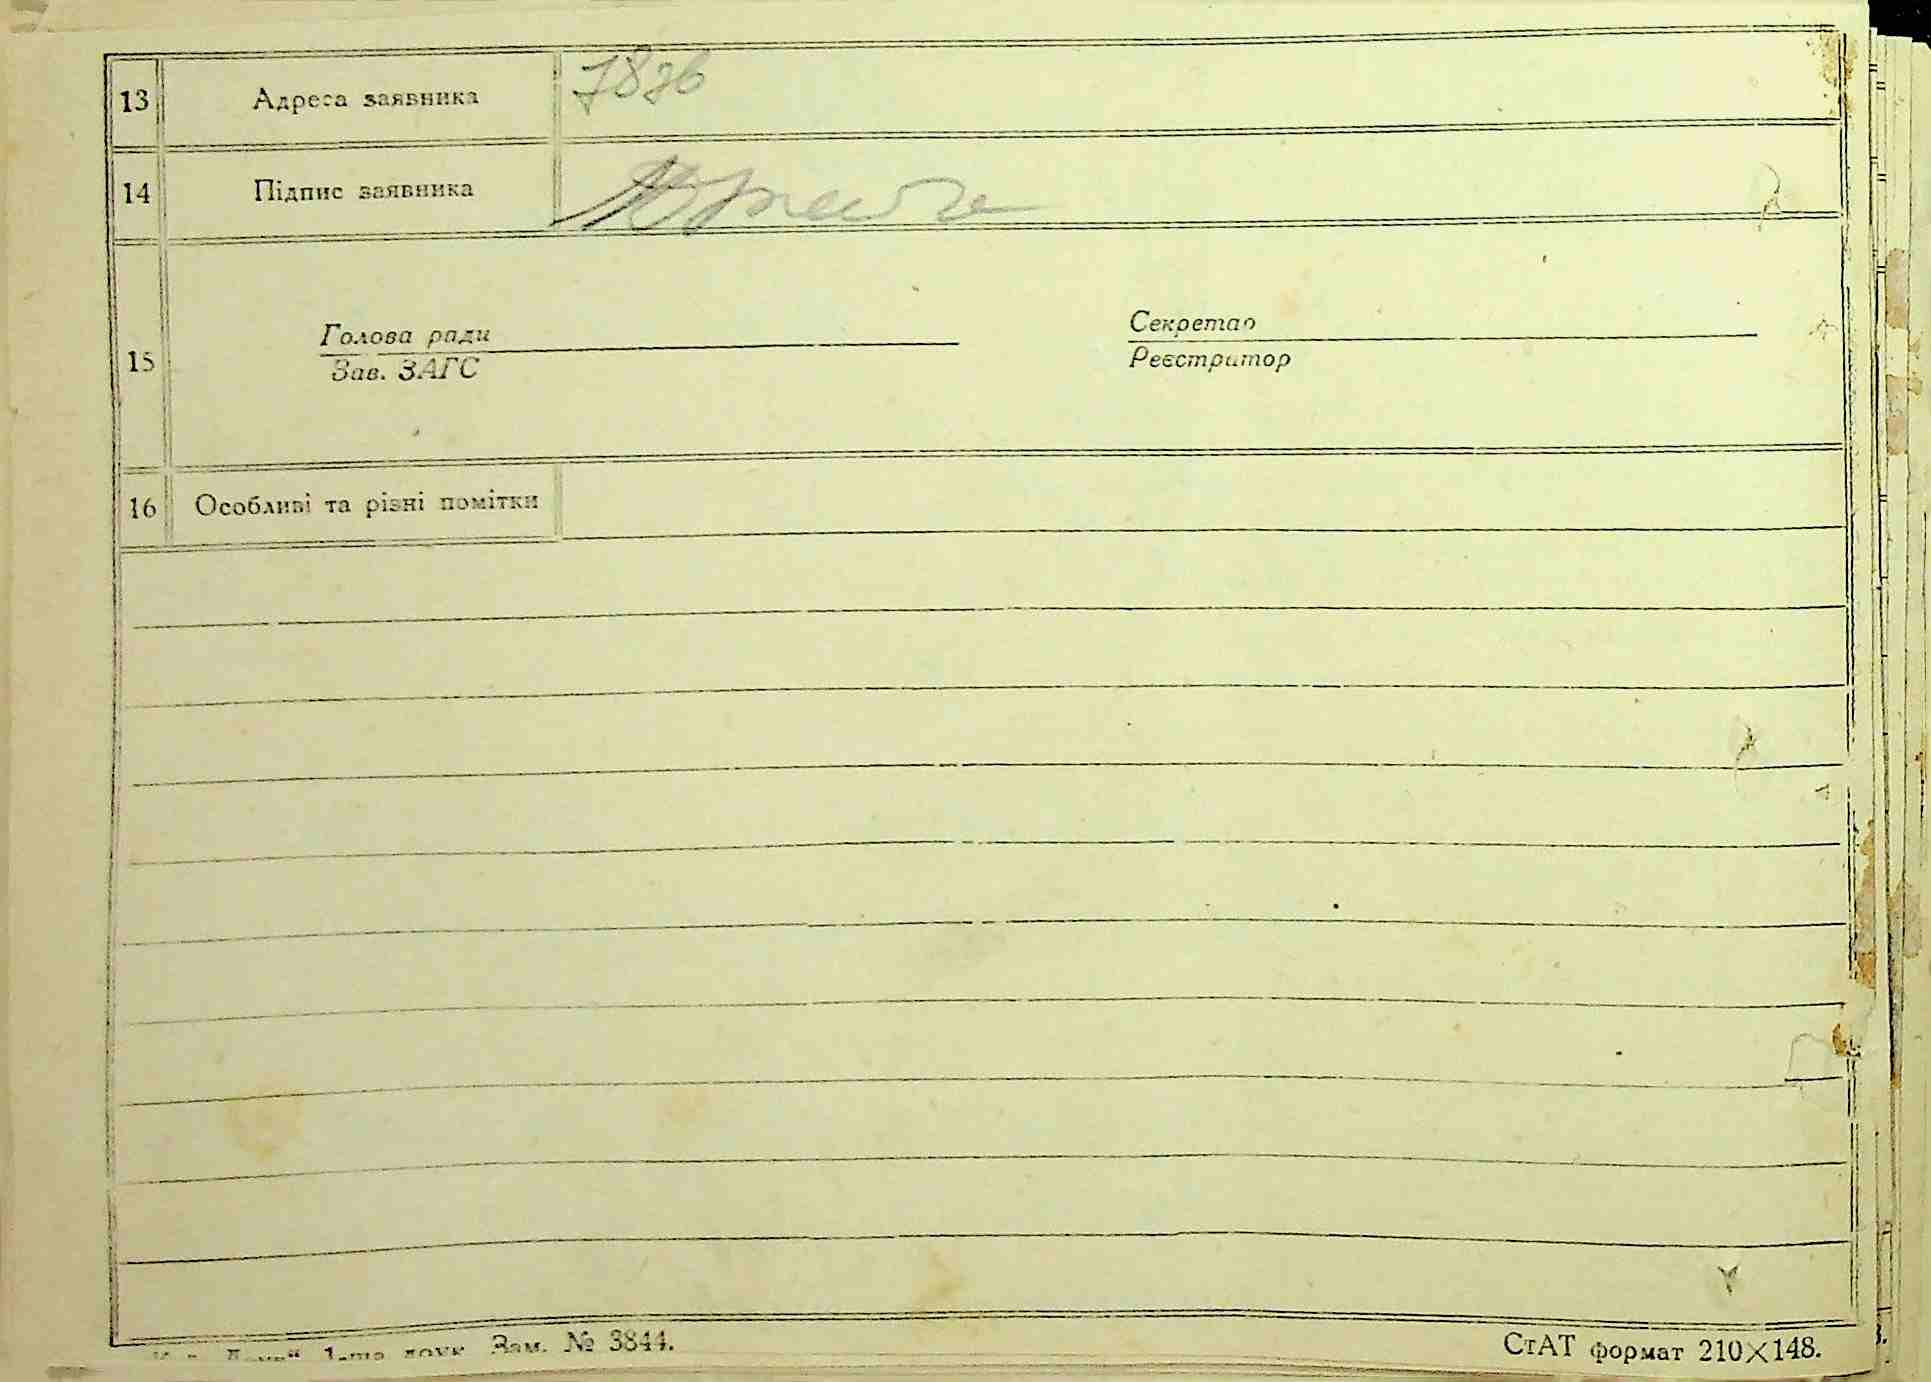 13 Адреса заявника
14 Підпис заявника
15
Голова ради
Зав. ЗАГС
Секретар
Реєстратор
16 Особливі та різні помітки
1-ша друк. Зам. № 3844.
СтАТ формат 210×148.